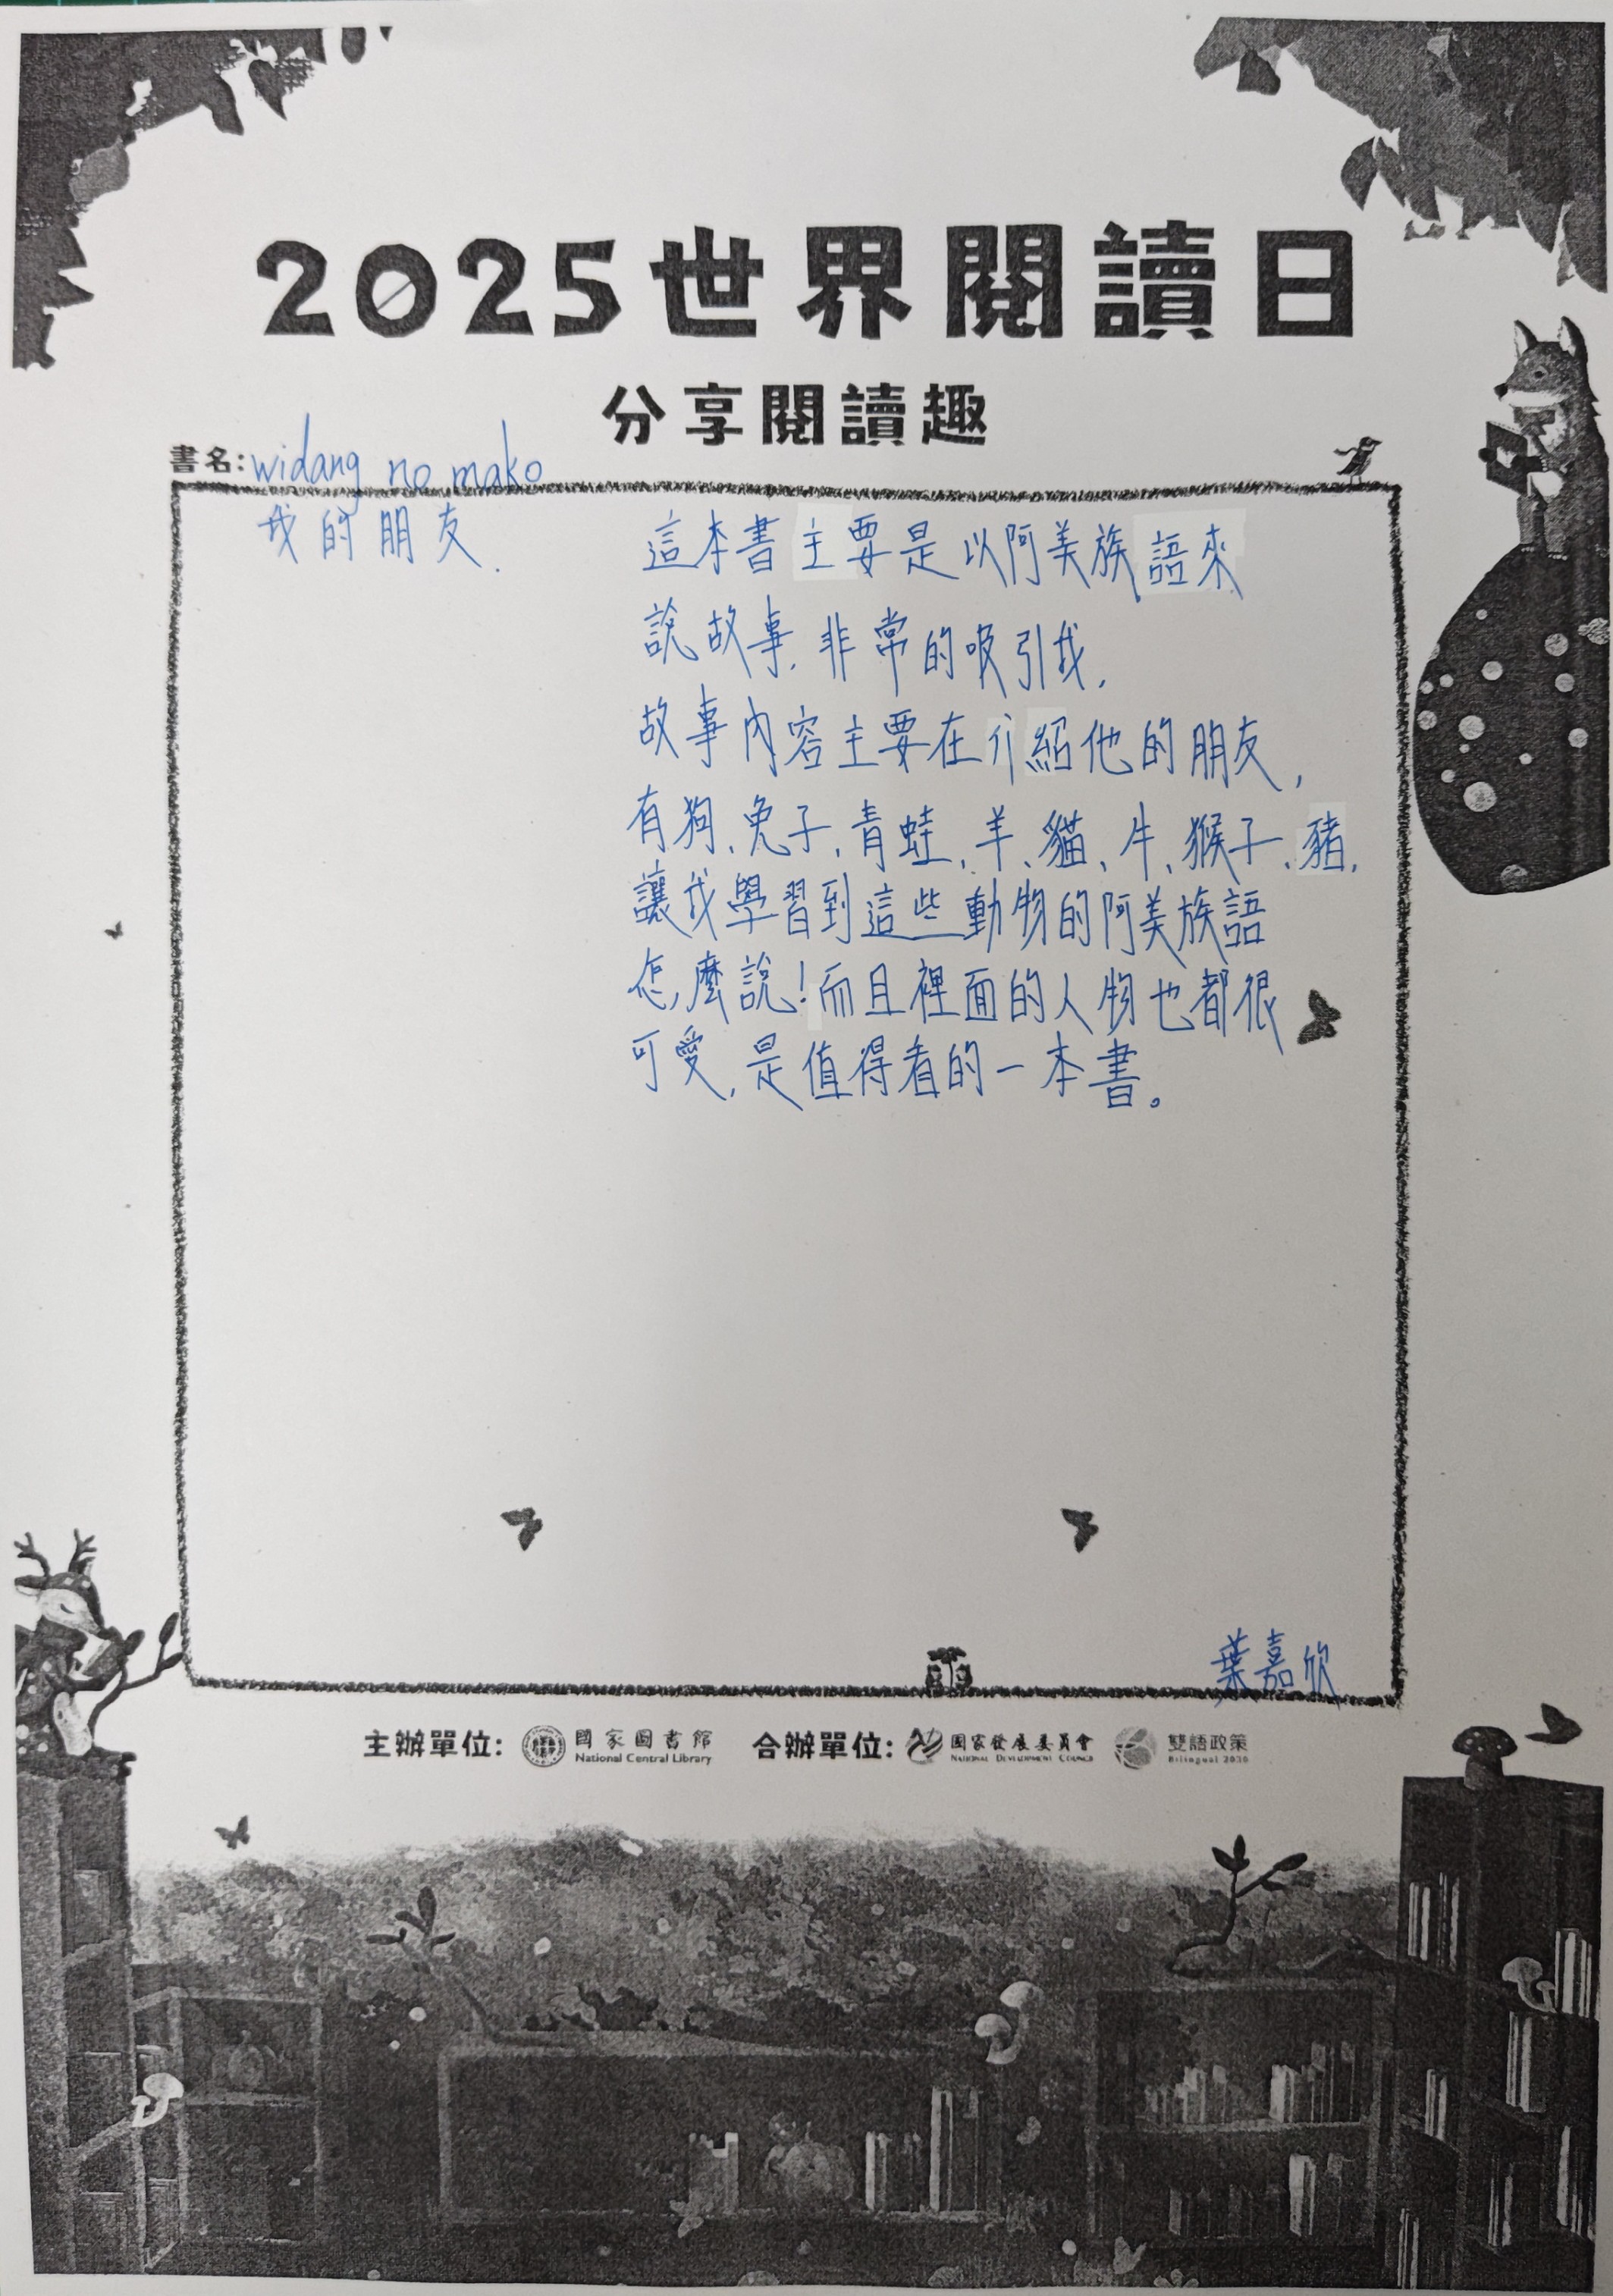 2025世界閱讀日
分享閱讀趣
書名:widang no mako
我的朋友.
這本書主要是以阿美族語來
說故事,非常的吸引我,
故事內容主要在介紹他的朋友,
有狗、兔子、青蛙、羊、貓、牛、猴子、豬,
讓我學習到這些動物的阿美族語
怎麼說!而且裡面的人物也都很
可愛,是值得看的一本書。
葉嘉欣
主辦單位: 國家圖書館 National Central Library 合辦單位: 國家發展委員會 National Development Council 雙語政策 Bilingual 2030